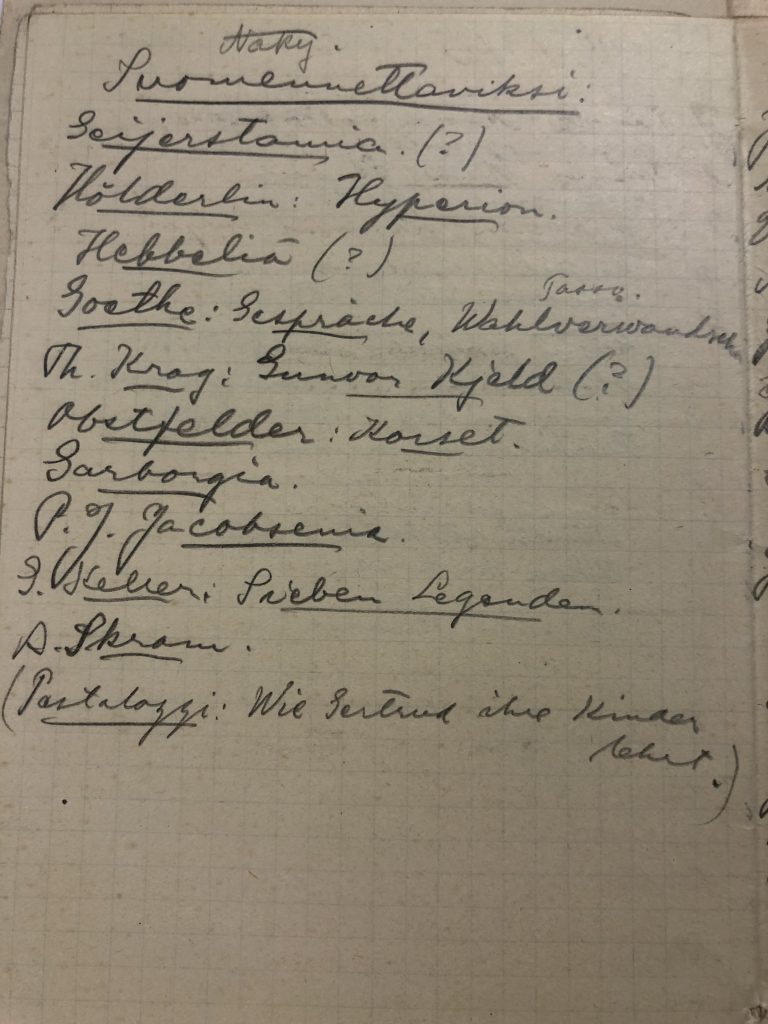 Suomennettaviksi:
Geijerstamia. (?)
Hölderlin: Hyperion.
Hebbeliä (?)
Tasso.
Goethe: Gespräche, Wahlverwandsch
Th. Krag: Gunvor Kjeld (?)
Obstfelder: Korset.
Garborgia.
P. J. Jacobsenia.
G. Keller: Sieben Legenden.
A. Skram.
(Pestalozzi: Wie Gertrud ihre Kinder
lehrt.)